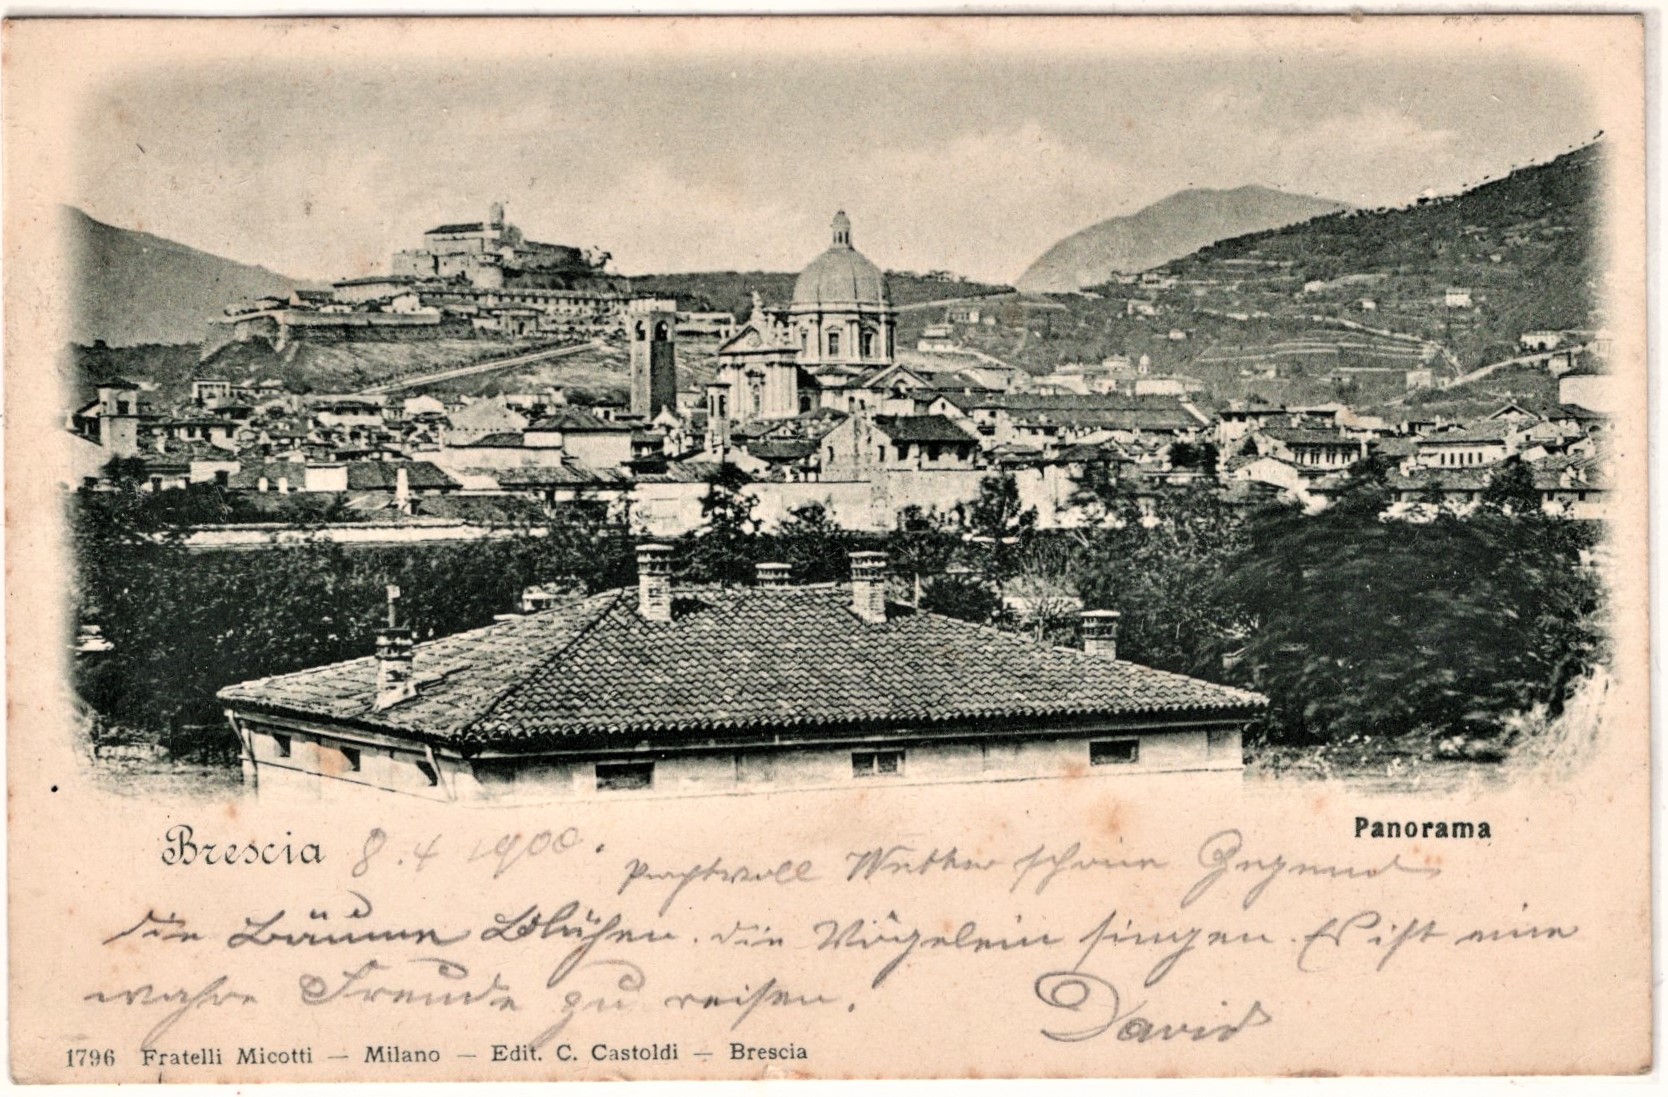 Panorama
Brescia 8.4 1900.
Prachtvoll Wetter schöne Gegend
die Bäume Blühen. die Vögelein singen. Es ist eine
wahre Freude zu reisen.
David
1796 Fratelli Micotti — Milano — Edit. C. Castoldi — Brescia